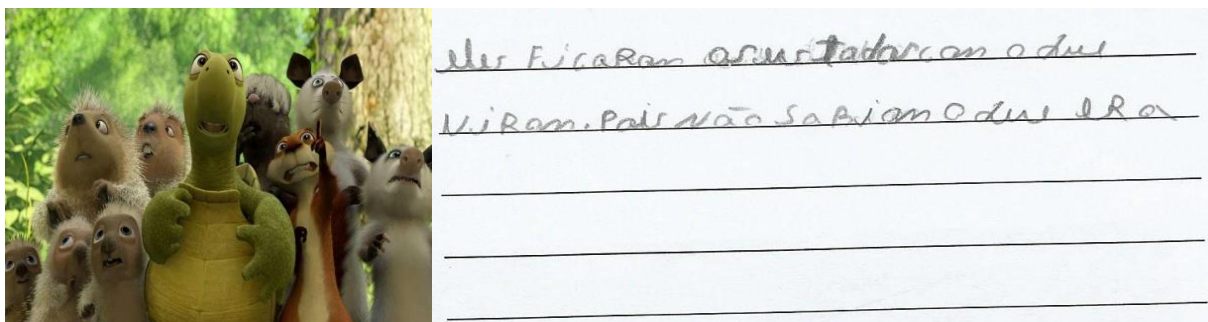 eles Ficaran asustados can o que
ViRam. Pois Não SaBian O que eRa